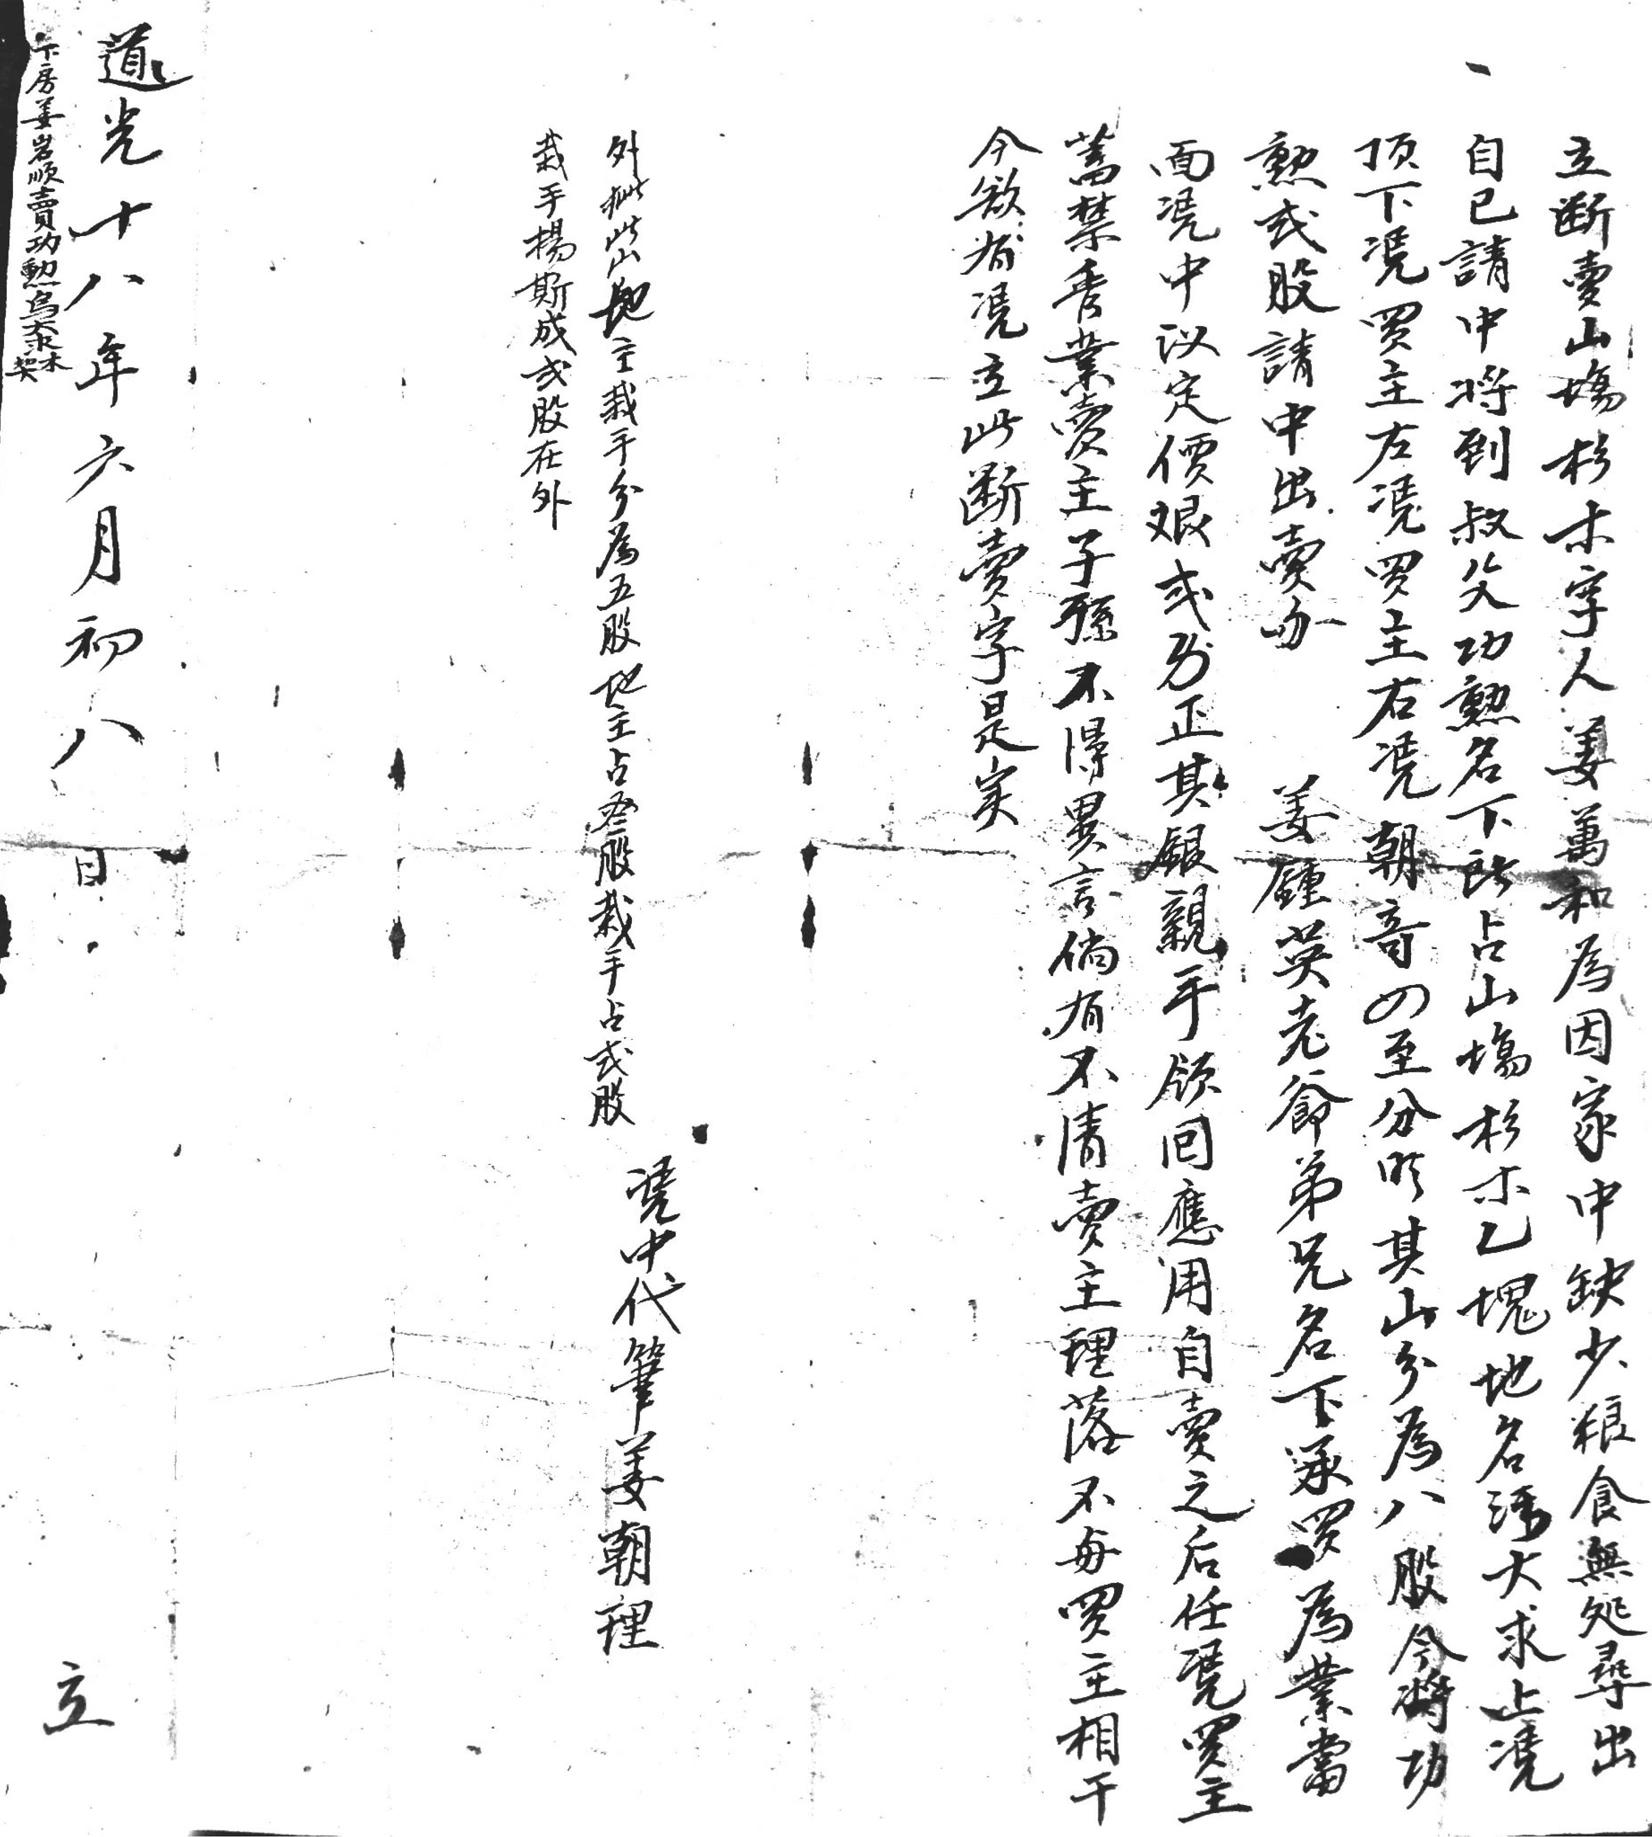 立断賣山塲杉木字人姜萬和為因家中缺少粮食無処尋出
自已請中将到叔父功勲名下所占山塲杉木乙塊地名汚大求上凴
頂下凴買主左凴買主右凴朝奇四至分明其山分為八股今將功
勲弍股請中出賣亦　姜鍾英老爺弟兄名下承買為業當
面凴中议定價艮弍分正其銀親手領回應用自賣之后任凴買主
蓄禁管業賣主子孫不得異言倘有不清賣主理落不与買主相干
今欲有凴立此断賣字是实
外批此山地主栽手分為五股地主占叁股栽手占弍股
栽手楊斯成弍股在外
凴中代筆姜朝理
道光十八年六月初八日　立
下房姜岩順賣功勲烏大求木契